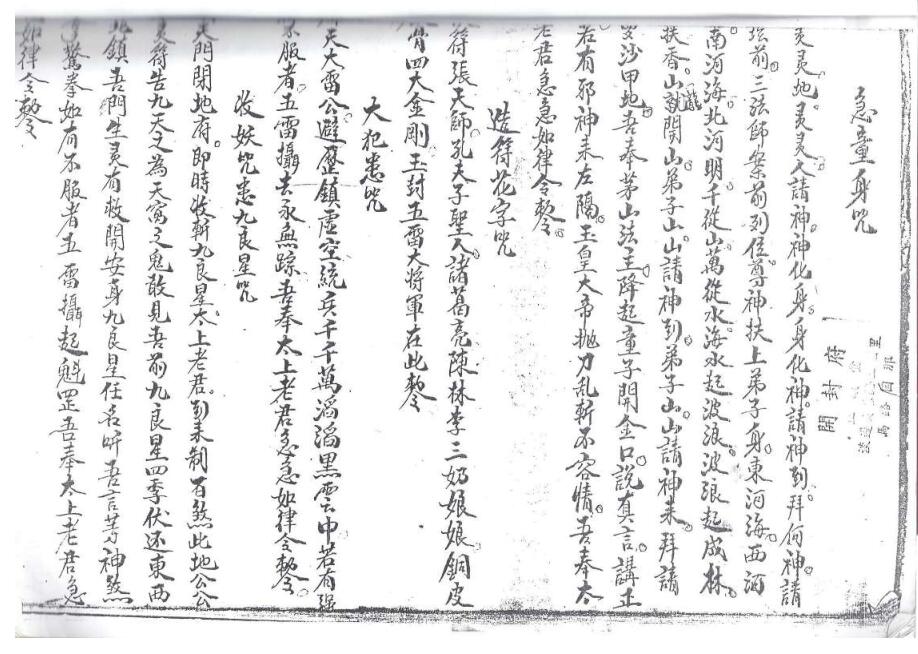 急童身咒
灵灵地。灵灵人請神。神化身。身化神。請神到拜何神請
弦前。三弦師祭前列位尊神扶上弟子身東河海西河
南河海。北河明。千從山萬從水海水起波浪。波浪起成林
扶香。山開山弟子山山請神到弟子山山請神来。拜請
沙甲地。吾奉茅山法主降起童子開金口說真言。講
若有邪神来左隔。玉皇大帝抛刀乱斬不容情。吾奉太
老君急急如律令勅。
造符花字咒
符張天師。孔夫子聖人。諸葛亮陳林李三奶娘娘。銅皮
骨四大金剛玉封五雷大將軍在此勅
大犯患咒
天大雷公避歷鎮虚空統兵千千萬滔滔黑雲中若有强
不服者。五雷攝去永無踪。吾奉太上老君急急如律令勅。
收妖咒患九良星咒
門閉地府。即時收斬九良星太上老君。到来制百煞此地公公
灵符告九天之為天寃之鬼敢見吾前九良星四季伏还東西
北鎮吾門生灵有救開安身九良星任名听吾言等神煞
驚拳如有不服者五雷攝起魁罡吾奉太上老君急
如律令勅
開封府